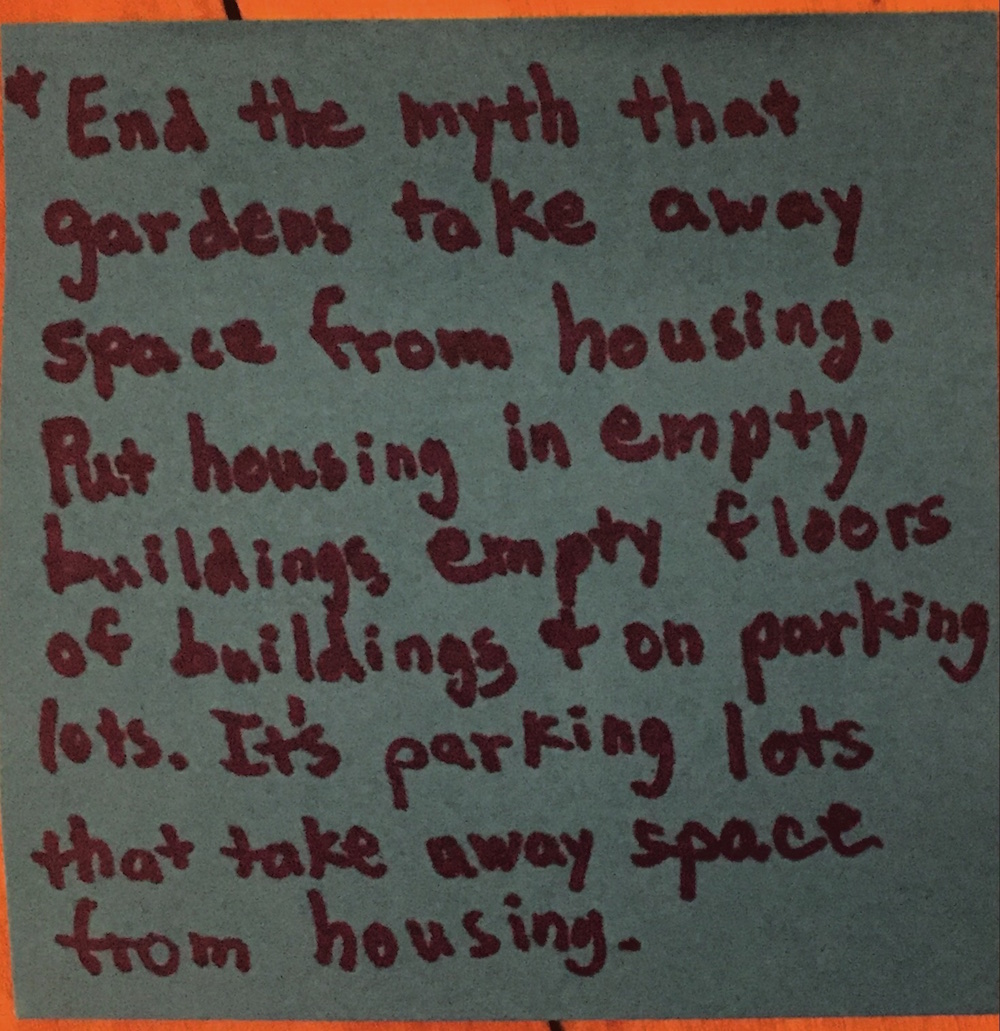 * End the myth that
gardens take away
space from housing.
Put housing in empty
buildings, empty floors
of buildings, + on parking
lots. It's parking lots
that take away space
from housing.